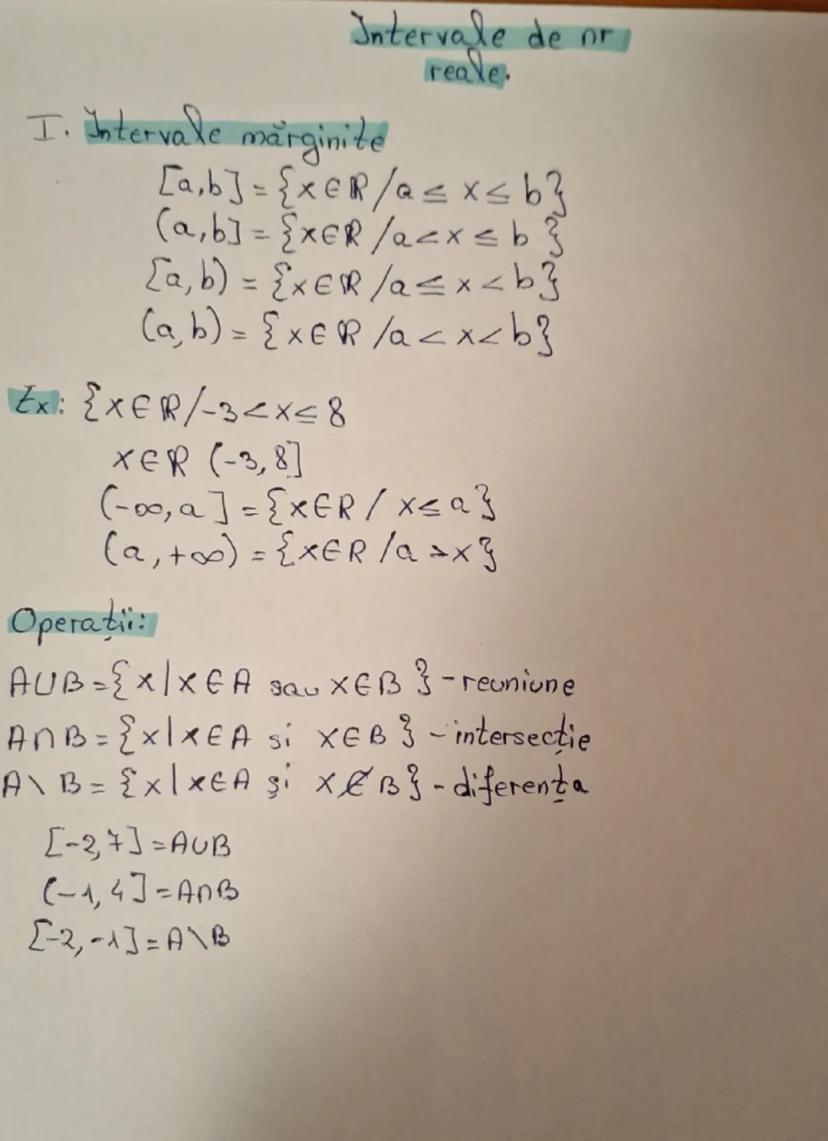 Intervale de nr
reale.
I. Intervale mărginite
[a,b] = {x∈ℝ/a ≤ x ≤ b}
(a,b] = {x∈ℝ/a<x ≤ b}
[a,b) = {x∈ℝ/a ≤ x < b}
(a,b) = {x∈ℝ/a < x < b}
Ex: {x∈ℝ/-3 < x ≤ 8
x∈ℝ (-3, 8]
(-∞, a] = {x∈ℝ/ x ≤ a}
(a, +∞) = {x∈ℝ/a > x}
Operații:
A∪B = {x|x∈A sau x∈B} - reuniune
A∩B = {x|x∈A si x∈B} - intersecție
A\B = {x|x∈A și x∉B} - diferența
[-2,7] = A∪B
(-1, 4] = A∩B
[-2, -1] = A\B